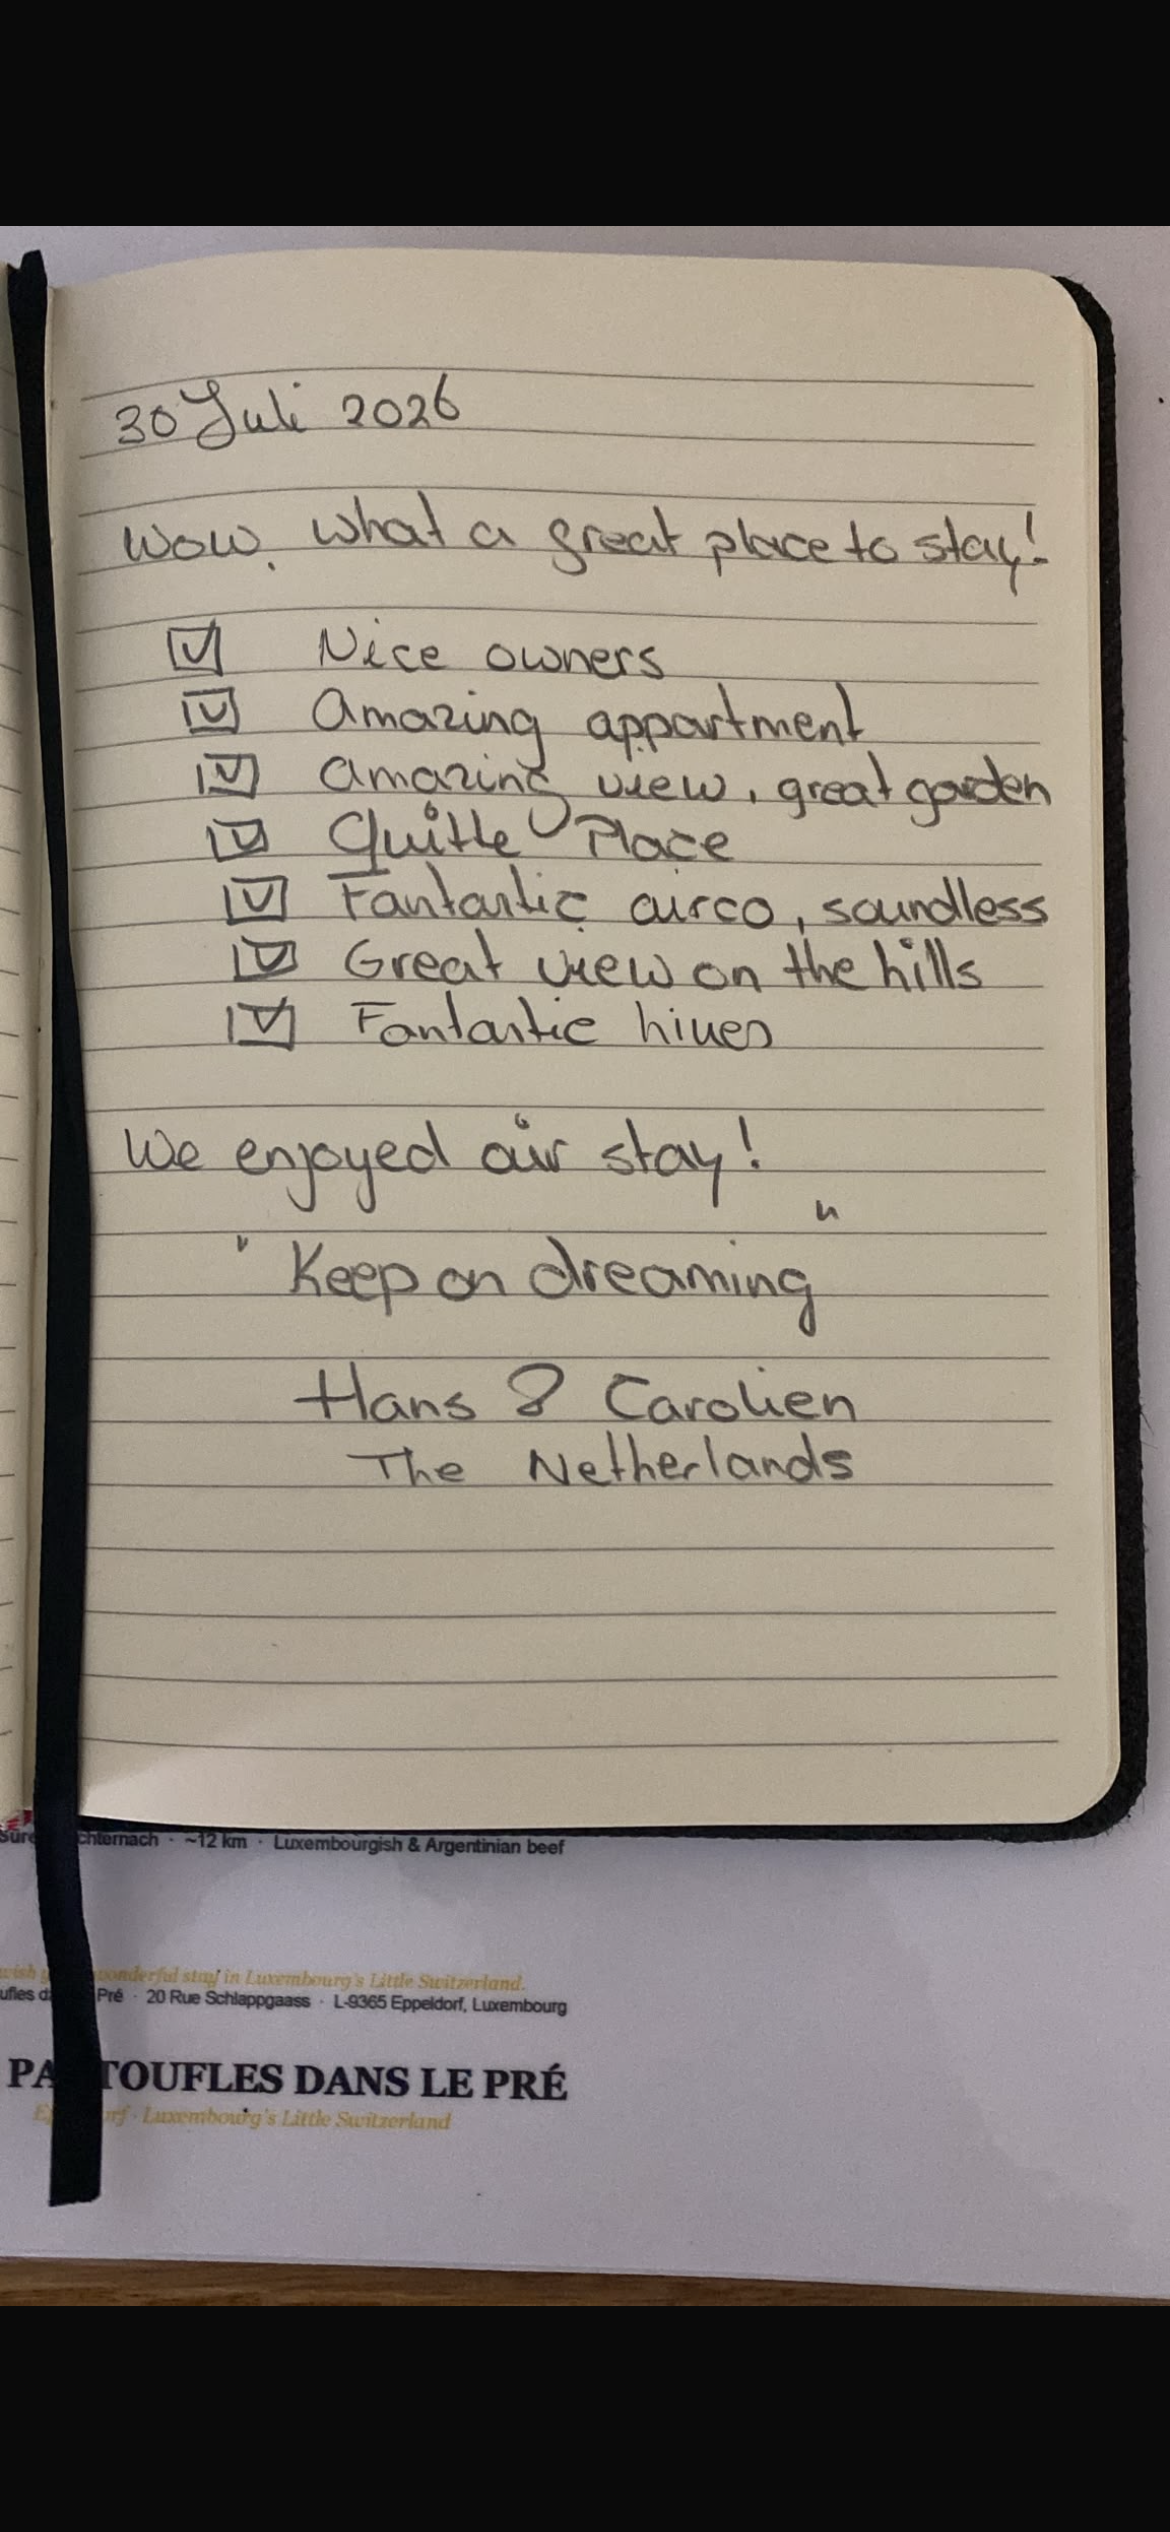 30 Juli 2026
Wow, what a great place to stay!
Nice owners
Amazing appartment
Amazing view, great garden
Quitte Place
Fantastic airco, soundless
Great view on the hills
Fantastic hikes
We enjoyed our stay!
"Keep on dreaming"
Hans & Carolien
The Netherlands
· ~12 km · Luxembourgish & Argentinian beef
wish wonderful stay in Luxembourg's Little Switzerland.
Pré · 20 Rue Schlappgaass · L-9365 Eppeldorf, Luxembourg
PANTOUFLES DANS LE PRÉ
· Luxembourg's Little Switzerland